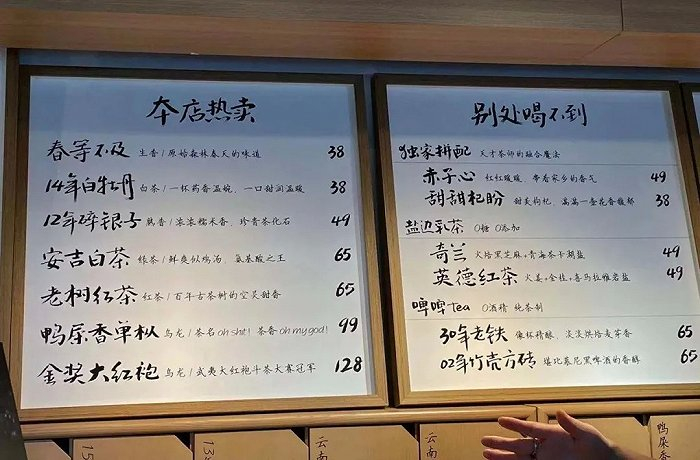 本店热卖
春等不及 生普/原始森林春天的味道 38
14年白牡丹 白茶/一杯药香温婉,一口甜润温暖 38
12年碎银子 熟普/浓浓糯米香、珍贵茶化石 49
安吉白茶 绿茶/鲜爽似鸡汤,氨基酸之王 65
老树红茶 红茶/百年古茶树的空灵甜香 65
鸭屎香单枞 乌龙/茶名oh shit! 茶香oh my god! 99
金奖大红袍 乌龙/武夷大红袍斗茶大赛冠军 128
别处喝不到
独家拼配 天才茶师的融合魔法
赤子心 红红暖暖,带着家乡的香气 49
甜甜杞盼 甜美枸杞,盏盏一壶花香馥郁 38
盐边乳茶 0糖 0添加
奇兰 火焙黑芝麻,青海茶卡湖盐 49
英德红茶 火姜,金桂,喜马拉雅岩盐 49
啤啤tea 0酒精 纯茶制
30年老铁 像杯精酿,淡淡烘焙麦芽香 65
02年竹壳方砖 堪比慕尼黑啤酒的香醇 65
15
13
云南
云南
鸭屎香